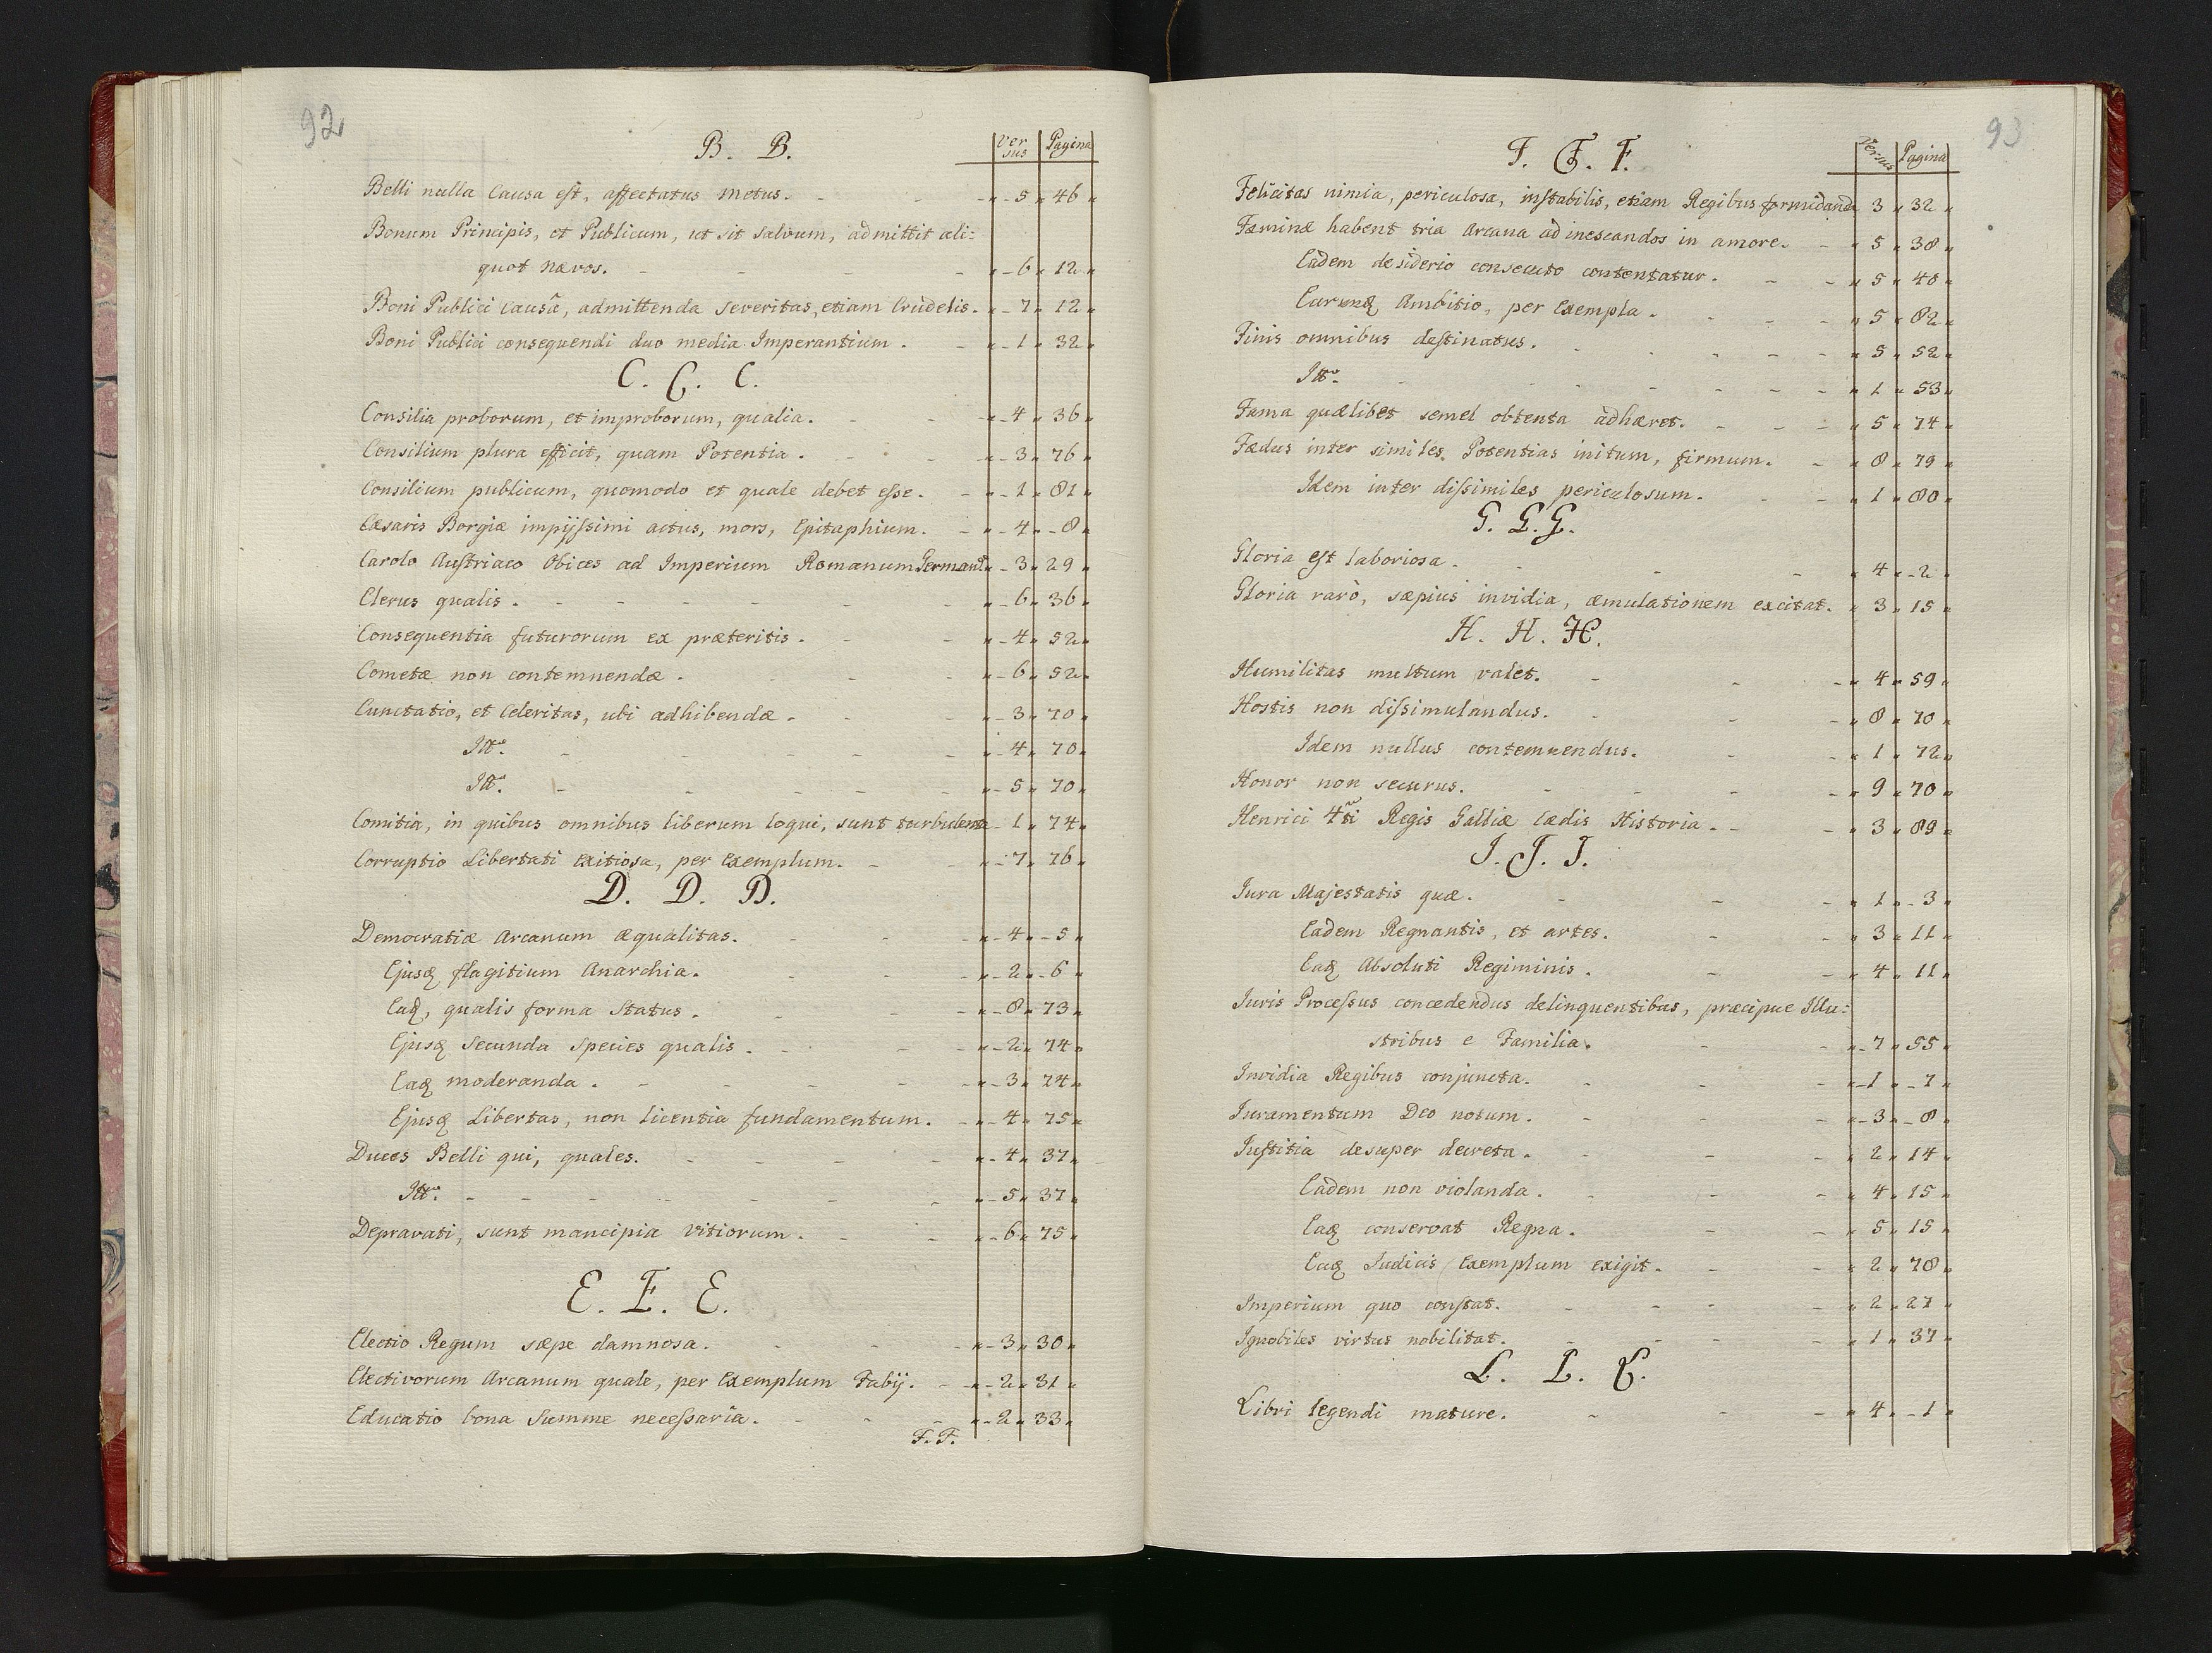 92
B. B. Versus Pagina
Belli nulla Causa est, affectatus metus. - - - 5 46
Bonum Principis, et Publicum, ut sit salvum, admittit ali=
quot nævos. - - - - 6 12
Boni Publici Causâ, admittenda severitas, etiam Crudelis. - 7 12
Boni Publici consequendi duo media Imperantium. - 1 32
C. C. C.
Consilia proborum, et improborum, qualia. - - 4 36
Consilium plura efficit, quam Potentia. - - - 3 76
Consilium publicum, quomodo et quale debet esse. - 1 81
Cæsaris Borgiæ impijssimi actus, mors, Epitaphium. - 4 8
Carolo Austriaco Obices ad Imperium Romanum 3 29
Clerus qualis. - - - - - - 6 36
Consequentia futurorum ex præteritis. - - 4 52
Cometæ non contemnendæ. - - - 6 52
Cunctatio, et Celeritas, ubi adhibendæ. - - 3 70
Itto. - - - - - - 4 70
Itto. - - - - - 5 70
Comitia, in quibus omnibus liberum loqui, sunt turbulenta 1 74
Corruptio Libertati exitiosa, per Exemplum. - 7 76
D. D. D.
Democratiæ Arcanum Æqualitas. - - - 4 5
Ejusq flagitium Anarchia. - - - 2 6
Eaq, qualis forma Status. - - - 8 73
Ejusq Secunda Species qualis. - - - 2 74
Eaq moderanda. - - - - - 3 74
Ejusq Libertas, non licentia fundamentum. - 4 75
Duces Belli qui, quales. - - - - 4 37
Itto. - - - - - - - 5 37
Depravati, sunt mancipia vitiorum. - - 6 75
E. E. E.
Electio Regum sæpe damnosa. - - - 3 30
Electivorum Arcanum quale, per Exemplum Fabij. - 2 31
Educatio bona Summe necessaria. - - - 2 33
F. F.
93
F. F. F. Versus Pagina
Felicitas nimia, periculosa, instabilis, etiam Regibus formidanda 3 32
Fæminæ habent tria Arcana ad inescandos in amore. - 5 38
Eædem desiderio consecuto contentatur. - - 5 40
Earumq Ambitio, per Exempla. - - - 5 82
Finis omnibus destinatus. - - - - 5 52
Itto. - - - - - - 1 53
Fama quælibet semel obtenta adhæret. - - - 5 74
Fædus inter similes Potentias initum, firmum. - 8 79
Idem inter dissimiles periculosum. - - 1 80
G. G. G.
Gloria est laboriosa. - - - 4 2
Gloria rarò, sæpius invidia, æmulationem excitat. 3 15
H. H. H.
Humilitas multum valet. - - - 4 59
Hostis non dissimulandus. - - - 8 70
Idem nullus contemnendus. - - 1 72
Honor non securus. - - - - 9 70
Henrici 4ti Regis Galliæ cædis Historia. - - 3 89
I. I. I.
Iura Majestatis quæ. - - - 1 3
Eadem Regnantis, et artes. - - 3 11
Eaq Absoluti Regiminis. - - 4 11
Iuris Processus concedendus delinquentibus, præcipue Illu=
stribus e Familia. - - 7 55
Invidia Regibus conjuncta. - - - 1 7
Iuramentum Deo notum. - - - 3 8
Iustitia desuper decreta. - - - 2 14
Eadem non violanda. - - - 4 15
Eaq conservat Regna. - - 5 15
Eaq Iudicis Exemplum exigit. - - 2 78
Imperium quo constat. - - - - 2 27
Ignobiles virtus nobilitat. - - - - 1 37
L. L. L.
Libri legendi mature. - - - 4 1